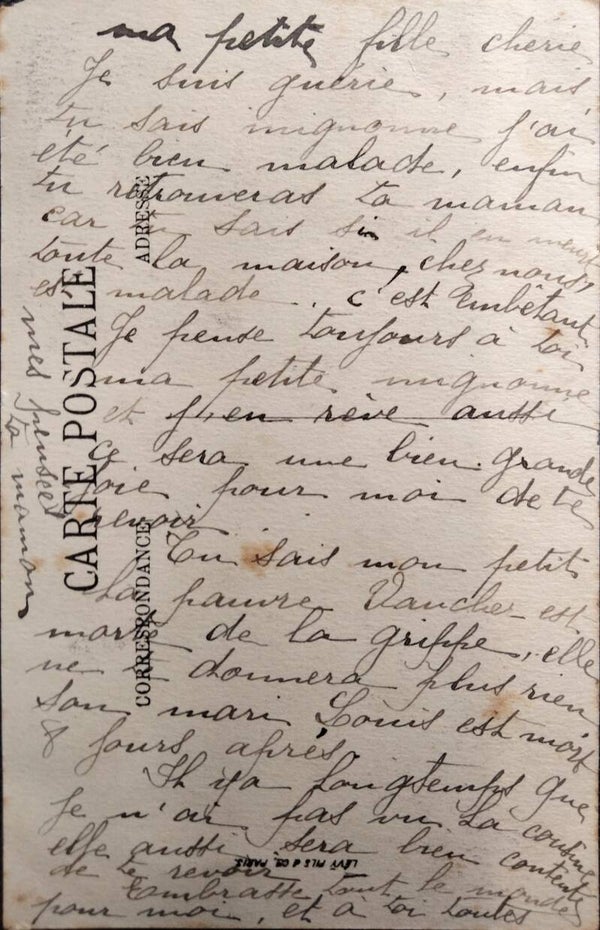 ma petite fille chérie
Je suis guérie, mais
tu sais mignonne j'ai
été bien malade, enfin
tu retrouveras ta maman
car tu sais si il en meurt
toute la maison, chez nous,
est malade. c'est embêtant
Je pense toujours à toi
ma petite mignonne
et j'en rêve aussi
ce sera une bien grande
joie pour moi de te
revoir
Tu sais mon petit
la pauvre Vaucher est
morte de la grippe, elle
ne donnera plus rien
son mari Louis est mort
8 jours après.
Il y a longtemps que
je n'ai pas vu ta cousine
elle aussi sera bien contente
de te revoir
Embrasse tout le monde
pour moi, et à toi toutes
mes pensées
ta maman
CARTE POSTALE
CORRESPONDANCE
ADRESSE
LÉVY FILS & CIE, PARIS